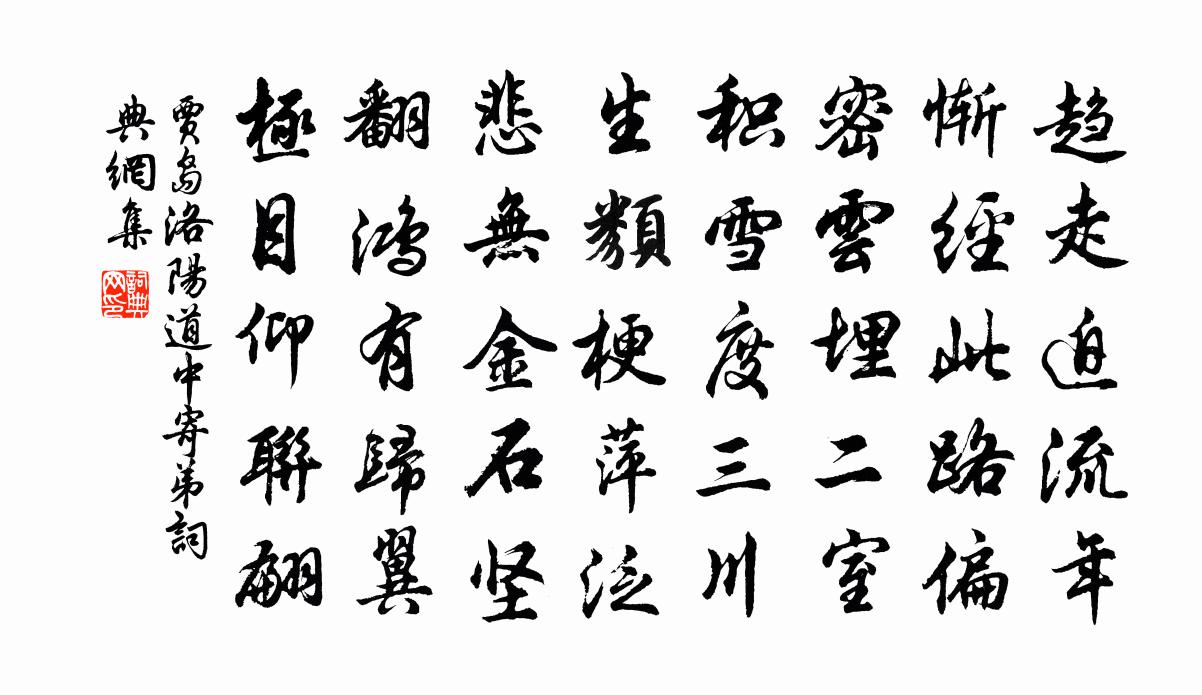 趋走迫流年
惭经此路偏
密雲埋二室
积雪度三川
生類梗萍泛
悲無金石坚
翻鸿有歸翼
極目仰聯翩
賈島洛陽道中寄弟詞
典網集
詞典
网印